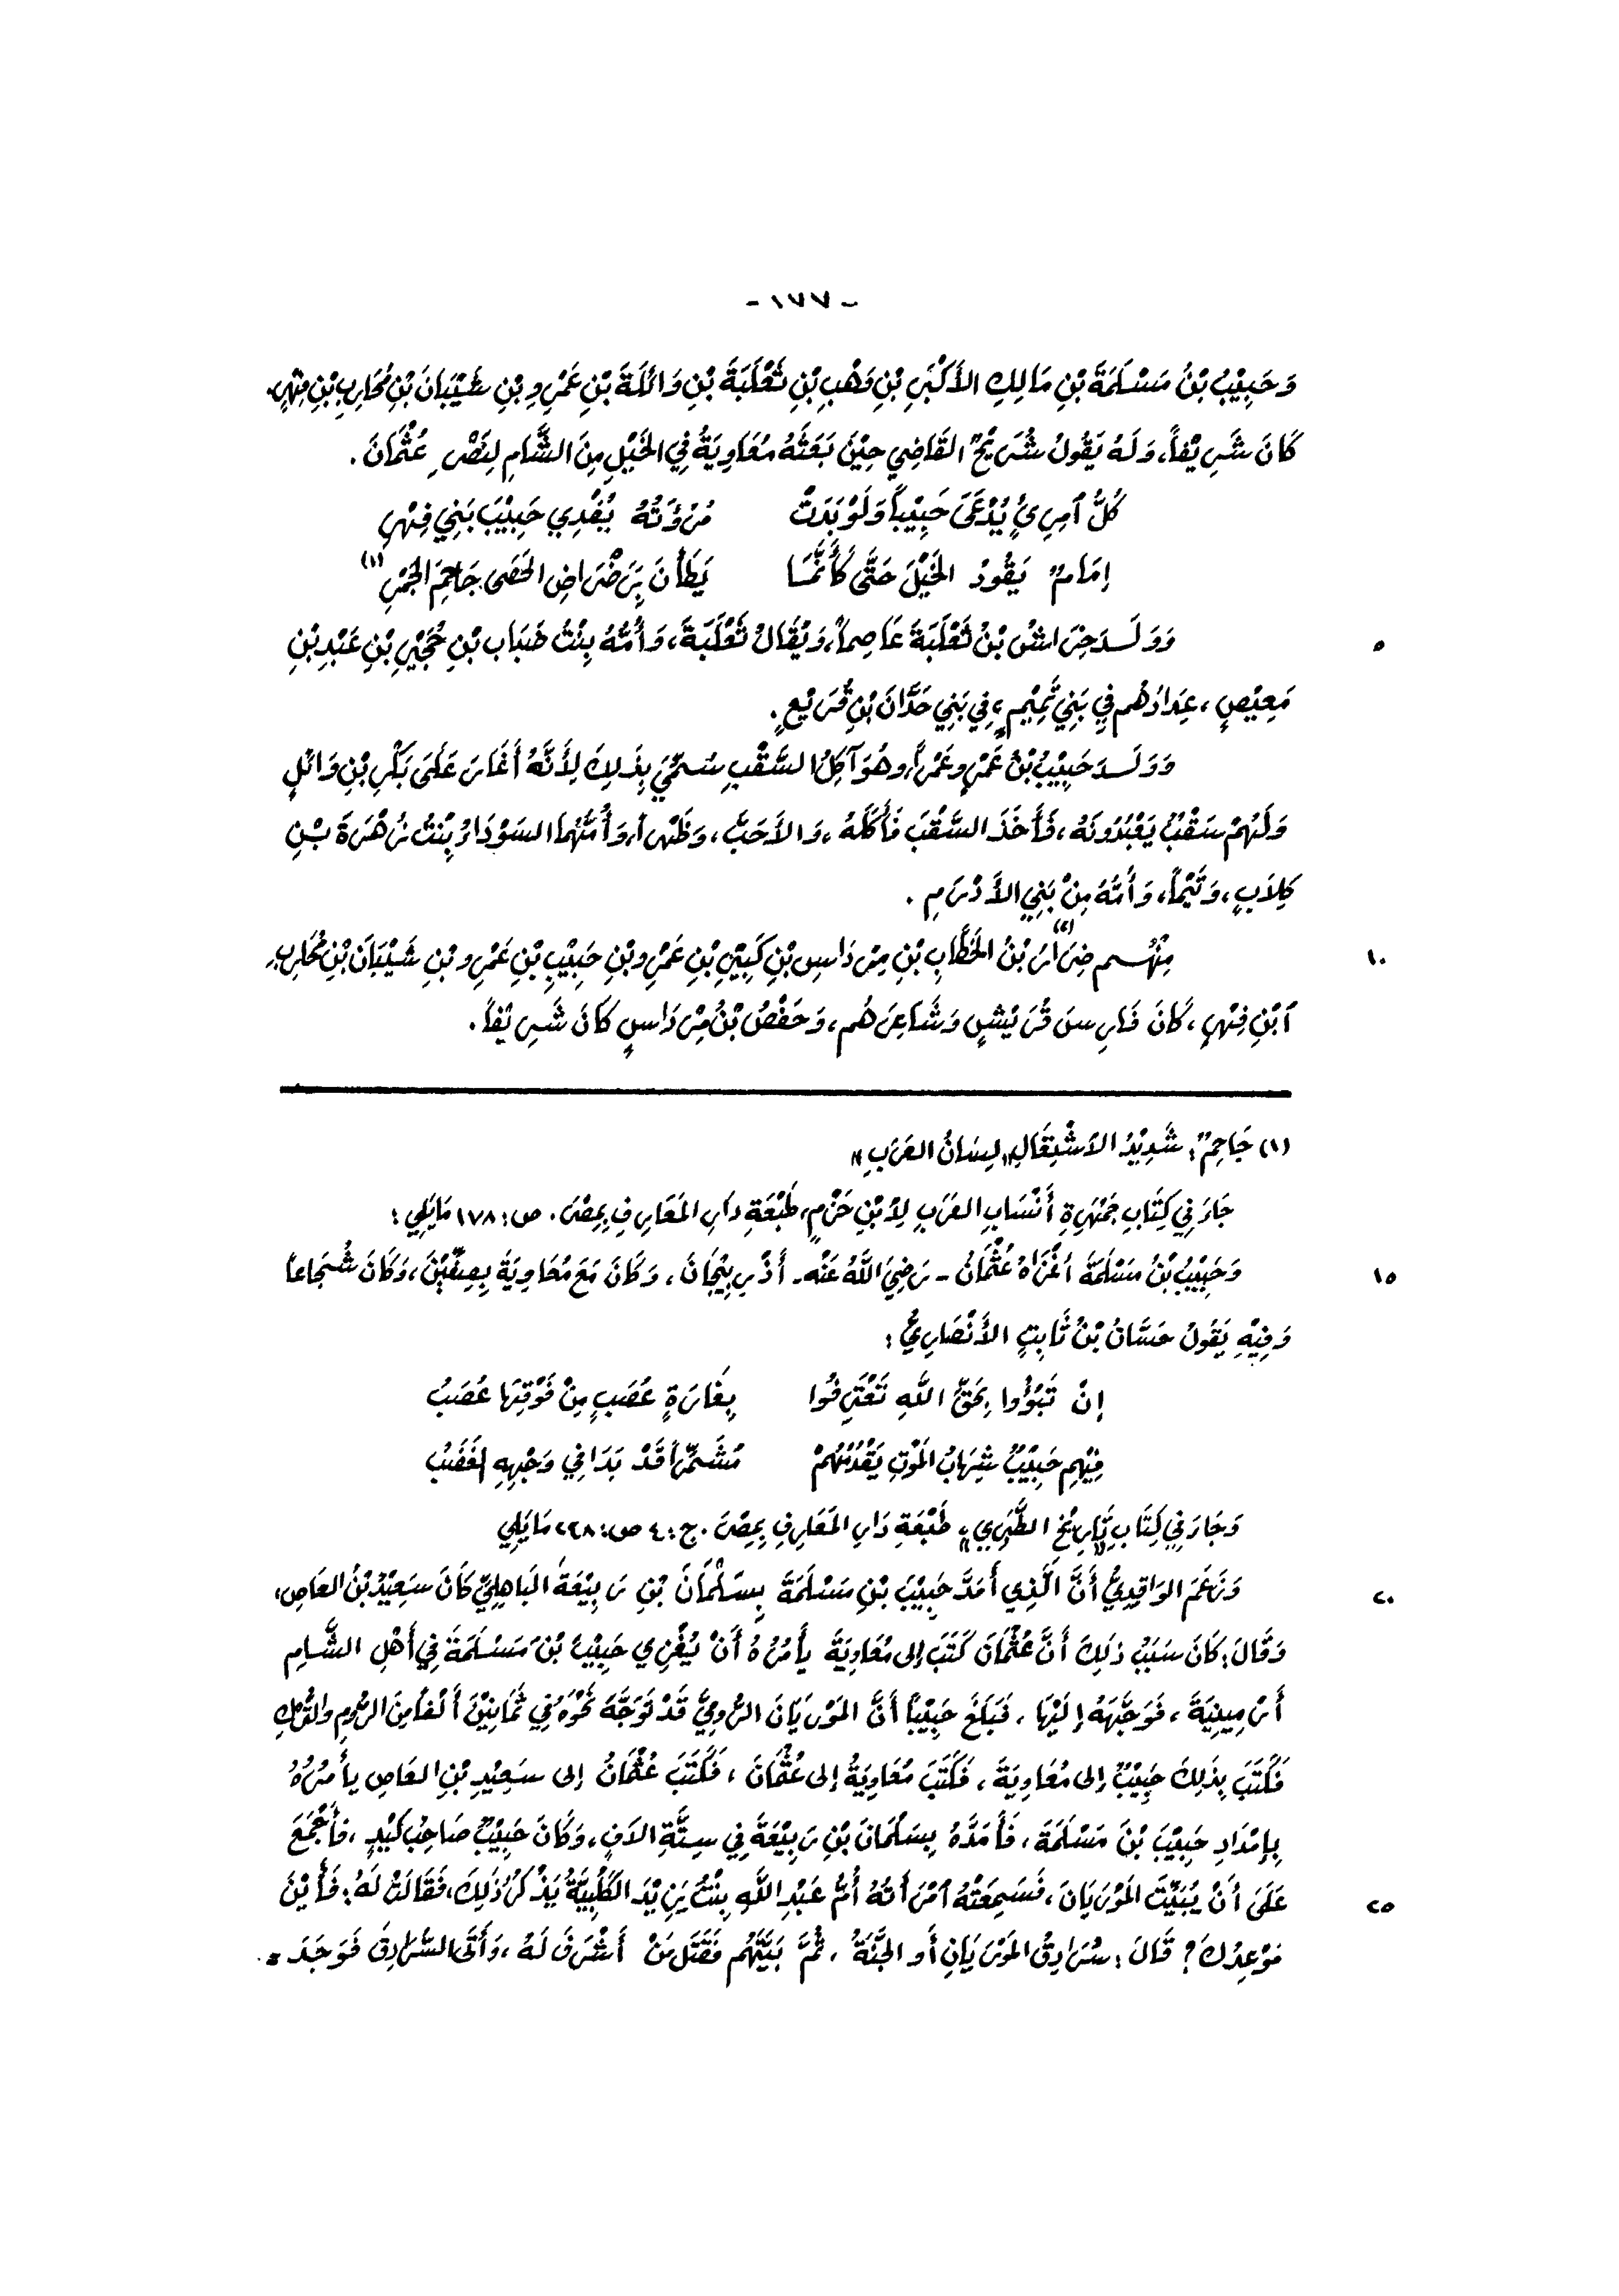 - ١٧٧ -
وَحَبِيْبُ بْنُ مَسْلَمَةَ بْنِ مَالِكِ الأَكْبَرِ بْنِ وَهْبِ بْنِ ثَعْلَبَةَ بْنِ وَائِلَةَ بْنِ عَمْرِو بْنِ شَيْبَانَ بْنِ مُحَارِبِ بْنِ فِهْرٍ.
كَانَ شَرِيْفاً، وَلَهُ يَقُولُ شُرَيْحٌ القَاضِي حِيْنَ بَعَثَهُ مُعَاوِيَةُ فِي الخَيْلِ مِنَ الشَّامِ لِنَصْرِ عُثْمَانَ .
كُلُّ آمْرِئٍ يُدْعَى حَبِيْباً وَلَوْ بَدَتْ مُرُؤَتُهُ يُفْدِي حَبِيْبَ بَنِي فِهْرِ
إِمَامٌ يَقُودُ الخَيْلَ حَتَّى كَأَنَّمَا يَطَأْنَ بِرَضْرَاضِ الحَصَى جَاحِمَ الجَمْرِ (١)
٥ وَوَلَدَ حِرَاشُ بْنُ ثَعْلَبَةَ عَاصِماً، وَيُقَالُ ثَعْلَبَةَ، وَأُمُّهُ بِنْتُ ضَبَابِ بْنِ حُجَيْرِ بْنِ عَبْدِ بْنِ
مَعِيْصٍ، عِدَادُهُم فِي بَنِي تَمِيْمٍ، فِي بَنِي حَدَّانَ بْنِ قُرَيْعٍ.
وَوَلَدَ حَبِيْبُ بْنُ عَمْرٍو عَمْراً، وهُوَ آكِلُ السَّقْبِ سُمِّيَ بِذَلِكَ لِأَنَّهُ أَغَارَ عَلَى بَكْرِ بْنِ وَائِلٍ
وَلَهُمْ سَقْبٌ يَعْبُدُونَهُ، فَأَخَذَ السَّقْبَ فَأَكَلَهُ، وَالأَحَبَّ، وَظَهْراً، وَأُمُّهُمَا السَوْدَاءُ بِنْتُ زُهْرَةَ بْنِ
كِلاَبٍ، وَتَيْماً، وَأُمُّهُ مِنْ بَنِي الأَدْرَمِ .
١٠ مِنْهُم ضِرَارُ (٢) بْنُ الخَطَّابِ بْنِ مِرْدَاسِ بْنِ كَبِيْرِ بْنِ عَمْرِو بْنِ حَبِيْبِ بْنِ عَمْرِو بْنِ شَيْبَانَ بْنِ مُحَارِبِ
آبْنِ فِهْرٍ، كَانَ فَارِسَ قُرَيْشٍ وَشَاعِرَهُم، وَحَفْصُ بْنُ مِرْدَاسٍ كَانَ شَرِيْفاً.
(١) جَاحِمٌ: شَدِيْدُ الاَشْتِعَالِ «لِسَانُ العَرَبِ»
جَاءَ فِي كِتَابِ جَمْهَرَةِ أَنْسَابِ العَرَبِ لِاُبْنِ حَزْمٍ، طَبْعَةِ دَارِ المَعَارِفِ بِمِصْرَ. ص: ١٧٨ مَايَلِي:
١٥ وَحَبِيْبُ بْنُ مَسْلَمَةَ أَغْزَاهُ عُثْمَانُ - رَضِيَ اللهُ عَنْه - أَذْرِبِيْجَانَ، وَكَانَ مَعَ مُعَاوِيَةَ بِصِفِّيْنَ، وَكَانَ شُجَاعاً
وَفِيْهِ يَقُولُ حَسَّانُ بْنُ ثَابِتٍ الأَنْصَارِيُّ :
إِنْ تَبُؤُوا بِحَقِّ اللهِ تَعْتَرِفُوا بِغَارَةٍ عُصَبٍ مِنْ فَوْقِهَا عُصَبُ
فِيْهِم حَبِيْبٌ شِهَابُ المَوْتِ يَقْدُمُهُمْ مُشَمِّراً قَدْ بَدَا فِي وَجْهِهِ الغَضَبُ
وَجَاءَ فِي كِتَابِ «تَارِيْخِ الطَّبَرِي» طَبْعَةِ دَارِ المَعَارِفِ بِمِصْرَ. ج: ٤ ص: ٢٤٨ مَايَلِي
٢٠ وَزَعَمَ الوَاقِدِيُّ أَنَّ الَّذِي أَمَدَّ حَبِيْبَ بْنَ مَسْلَمَةَ بِسَلْمَانَ بْنِ رَبِيْعَةَ البَاهِلِيِّ كَانَ سَعِيْدُ بْنُ العَاصِ،
وَقَالَ: كَانَ سَبَبُ ذَلِكَ أَنَّ عُثْمَانَ كَتَبَ إلى مُعَاوِيَةَ يَأْمُرُهُ أَنْ يُغْزِي حَبِيْبَ بْنَ مَسْلَمَةَ فِي أَهْلِ الشَّامِ
أَرْمِينِيَةَ، فَوَجَّهَهُ إِلَيْهَا، فَبَلَغَ حَبِيْباً أَنَّ المَوْرِيَانَ الرُّومِيَّ قَدْ تَوَجَّهَ نَحْوَهُ فِي ثَمَانِيْنَ أَلْفاً مِنَ الرُّومِ والتُّركِ
فَكَتَبَ بِذَلِكَ حَبِيْبٌ إلى مُعَاوِيَةَ، فَكَتَبَ مُعَاوِيَةُ إلى عُثْمَانَ، فَكَتَبَ عُثْمَانُ إلى سَعِيْدِ بْنِ العَاصِ يَأْمُرُهُ
بِإِمْدَادِ حَبِيْبَ بْنَ مَسْلَمَةَ، فَأَمَدَّهُ بِسَلْمَانَ بْنِ رَبِيْعَةَ فِي سِتَّةِ الاَفٍ، وَكَانَ حَبِيْبٌ صَاحِبَ كَيْدٍ، فأَجْمَعَ
٢٥ عَلَى أَنْ يُبَيِّتَ المَوْرِيَانَ، فَسَمِعَتْهُ آمْرَأَتُهُ أُمُّ عَبْدِ اللهِ بِنْتُ يَزِيْدَ الكَلْبِيَّةُ يَذْكُرُ ذَلِكَ، فَقَالَتْ لَهُ: فَأَيْنَ
مَوْعِدُكَ؟ قَالَ: سُرَادِقُ المَوْرِيَانِ أَو الجَنَّةُ، ثُمَّ بَيَّتَهُم فَقَتَلَ مَنْ أَشْرَفَ لَهُ، وَأَتَى السُّرَادِقَ فَوَجَدَ =